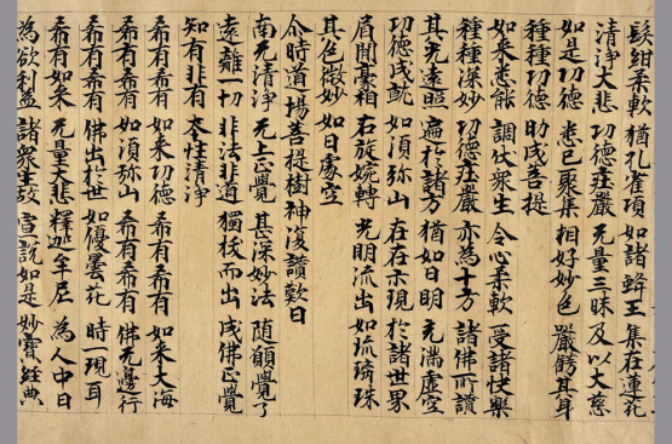 髮紺柔軟 猶孔雀項 如諸蜂王 集在蓮花
清淨大悲 功德莊嚴 无量三昧 及以大慈
如是功德 悉已聚集 相好妙色 嚴餝其身
種種功德 助成菩提
如来悉能 調伏衆生 令心柔軟 受諸快樂
種種深妙 功德莊嚴 亦為十方 諸佛所讃
其光遠照 遍於諸方 猶如日明 充満虚空
功德成就 如湏弥山 在在示現 於諸世界
眉間豪相 右旋婉轉 光明流出 如琉璃珠
其色微妙 如日處空
尒時道場菩提樹神復讃歎曰
南无清淨 无上正覺 甚深妙法 随順覺了
遠離一切 非法非道 獨拔而出 成佛正覺
知有非有 夲性清淨
希有希有 如来功德 希有希有 如来大海
希有希有 如湏弥山 希有希有 佛无邊行
希有希有 佛出於世 如優曇花 時一現耳
希有如来 无量大悲 釋迦牟尼 為人中日
為欲利益 諸衆生故 宣說如是 妙寶經典